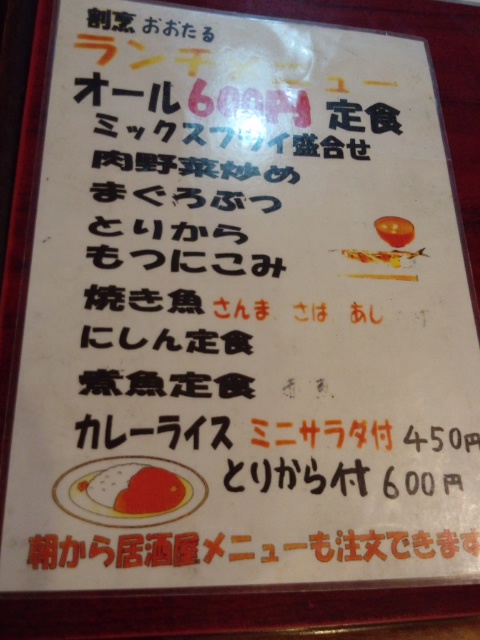 割烹 おおたる
ランチメニュー
オール600円 定食
ミックスフライ盛合せ
肉野菜炒め
まぐろぶつ
とりから
もつにこみ
焼き魚 さんま さば あじ
にしん定食
煮魚定食
カレーライス ミニサラダ付 450円
とりから付 600円
朝から居酒屋メニューも注文できます